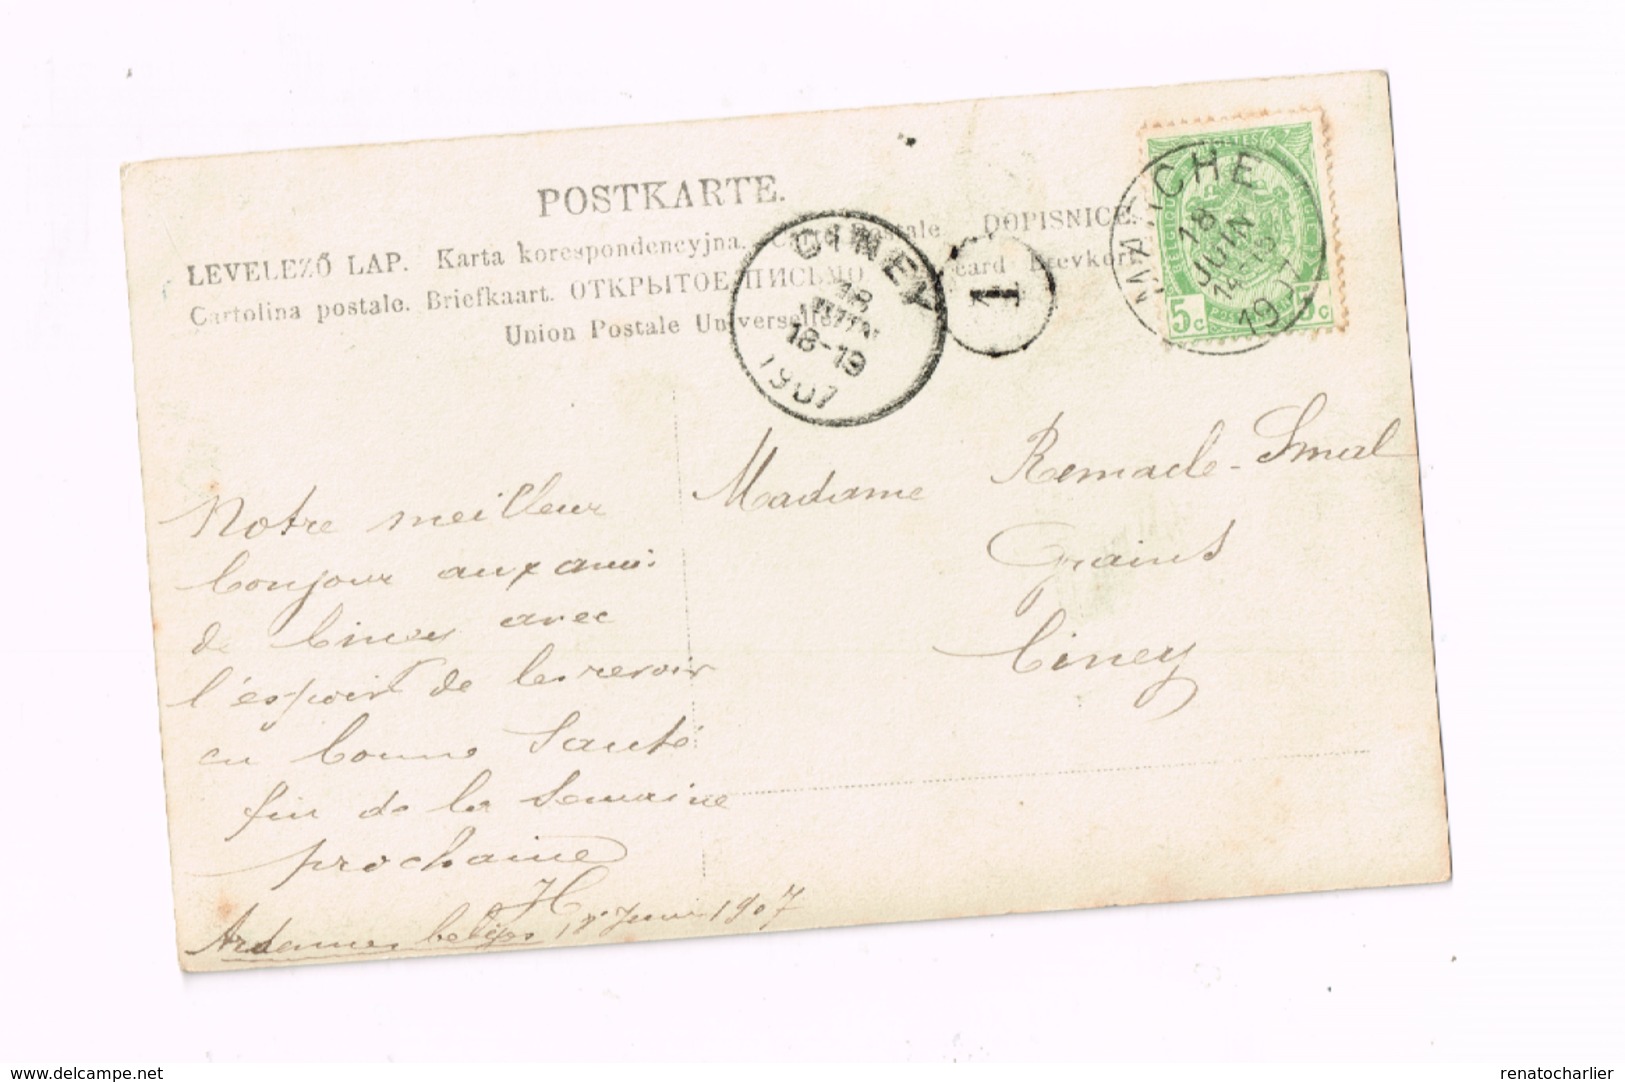 POSTKARTE.
LEVELEZŐ LAP. Karta korespondencyjna. postale. DOPISNICE.
Cartolina postale. Briefkaart. ОТКРЫТОЕ ПИСЬМО card Brevkort
Union Postale Universelle
CINEY
18
JUIN
18-19
1907
1
CHE
18
JUIN
1907
BELGIQUE
5c 5c
Madame Remacle-Smal
Grains
Ciney
Notre meilleur
bonjour aux amis
de Ciney avec
l'espoir de les revoir
en bonne Santé
fin de la Semaine
prochaine
H
Ardennes belges, 18 Juin 1907
delcampe.net
renatocharlier